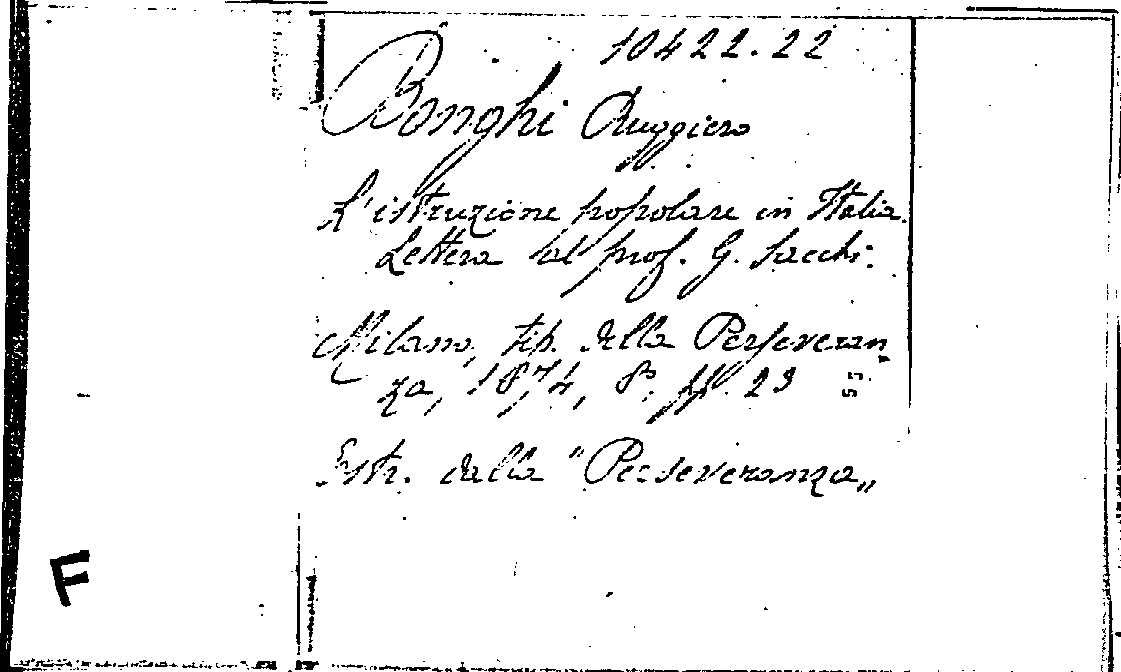 10422.22
Bonghi Ruggiero
L'istruzione popolare in Italia.
Lettera al prof. G. Sacchi.
Milano, tip. della Perseveran
za, 1874, 8°. pp. 23
Estr. dalla "Perseveranza„
F